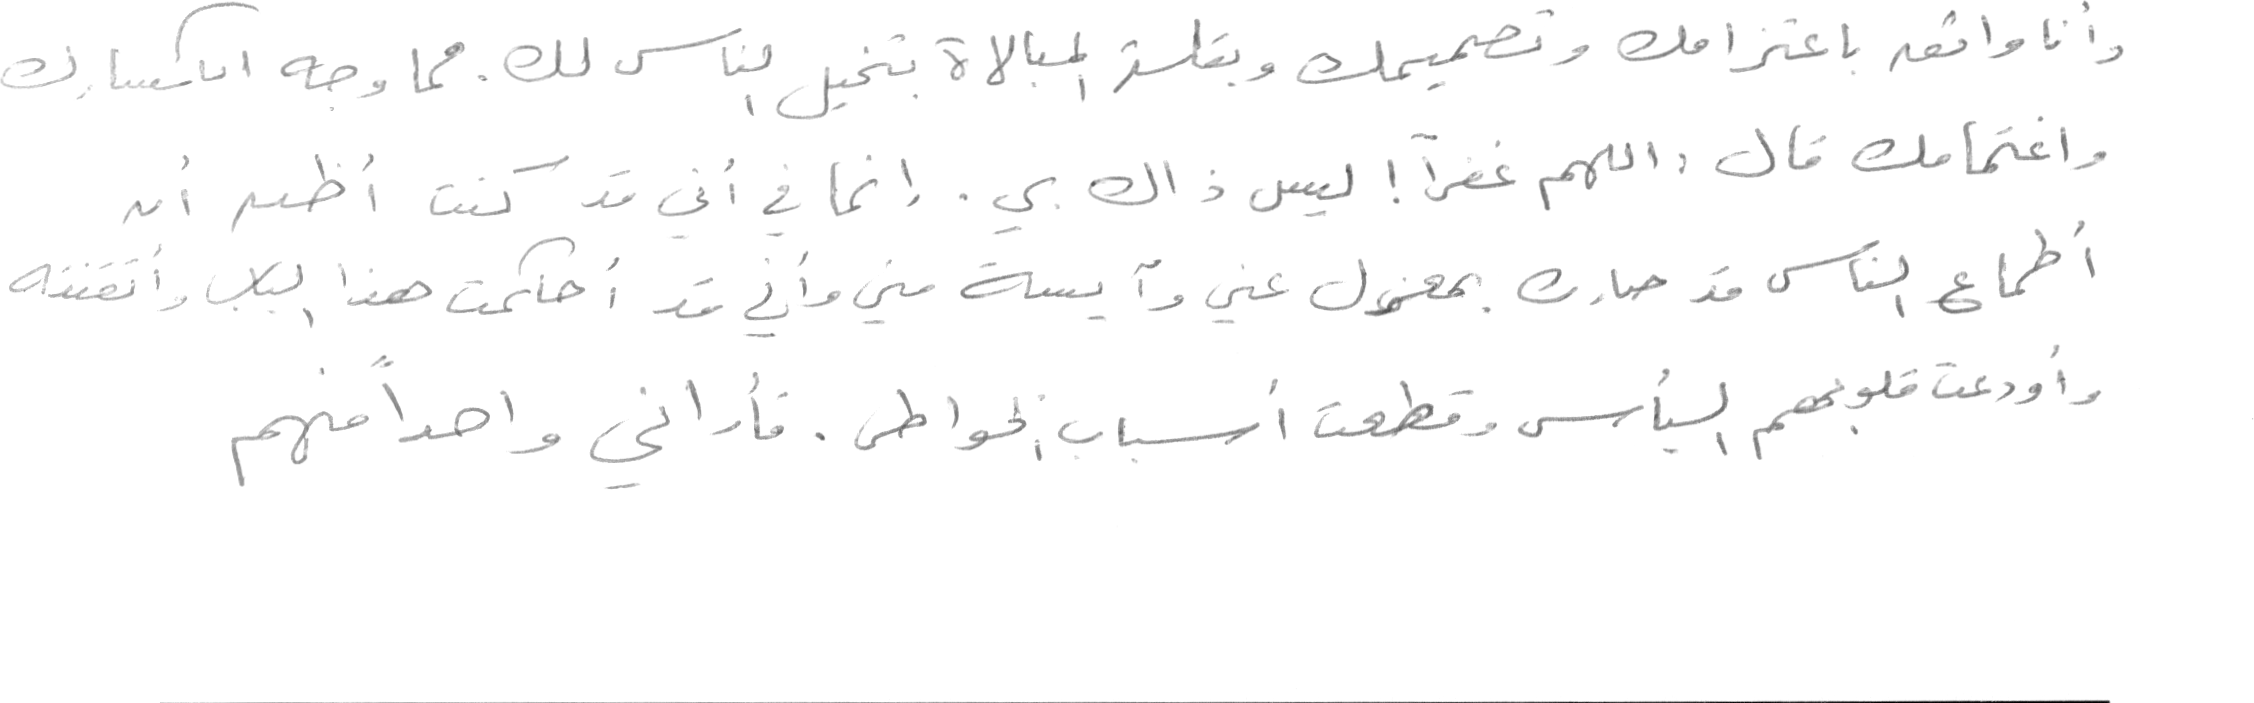 وأنا واثق باعتزامك وتصميمك وبقلة المبالاة بتخيل الناس لك. فما وجه انكسارك
واغتمامك قال: اللهم غفرآ! ليس ذاك بي. إنما في أني قد كنت أظن أن
أطماع الناس قد صارت بمعزل عني وآيسة مني وأني قد أحكمت هذا الباب وأتقنته
وأودعت قلوبهم اليأس وقطعت أسباب الخواطر. فأراني واحداً منهم